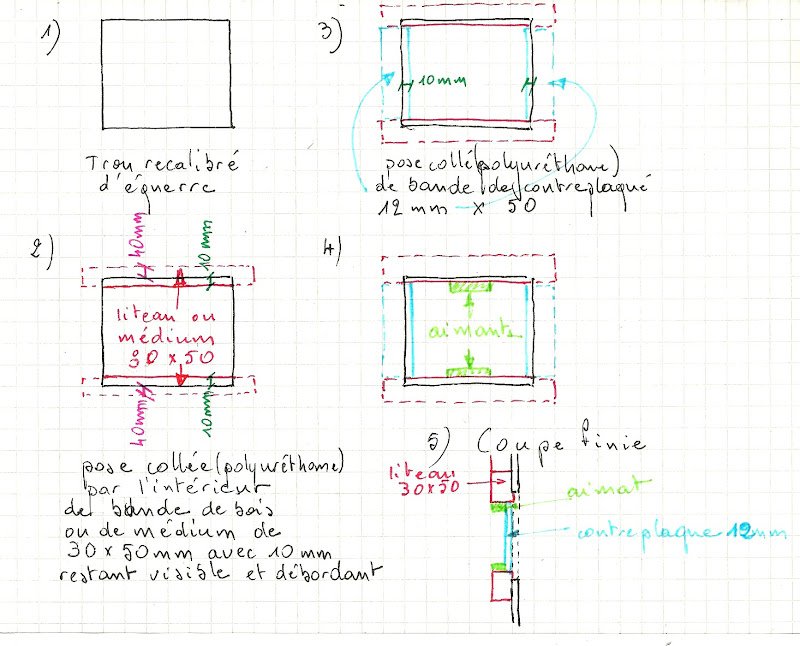 1)
Trou recalibré
d'équerre
2)
40mm
10mm
liteau ou
médium
30 x 50
40mm
10mm
pose collée (polyuréthane)
par l'intérieur
de bande de bois
ou de médium de
30 x 50 mm avec 10 mm
restant visible et débordant
3)
10mm
pose collée (polyuréthane)
de bande de contreplaqué
12 mm x 50
4)
aimants
5) Coupe finie
liteau
30x50
aimat
contreplaque 12mm